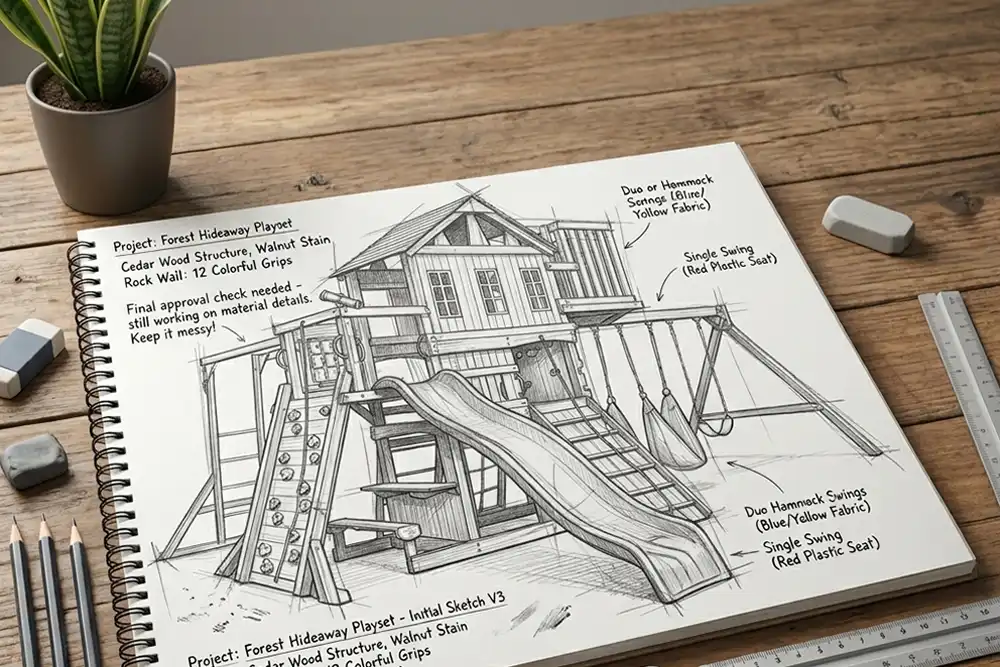 Project: Forest Hideaway Playset
Cedar Wood Structure, Walnut Stain
Rock Wall: 12 Colorful Grips
Final approval check needed -
still working on material details.
Keep it messy!
Duo or Hammock
Sorngs (Blire/
Yellow Fabric)
Single Swing
(Red Plastic Seat)
Duo Hamnock Swings
(Blue/Yellow Fabric)
Single Swing
(Red Plastic Seat)
Project: Forest Hideaway Playset - Initial Sketch V3
Cedar Wood Structure, Walnut Stain
12 Colorful Grips